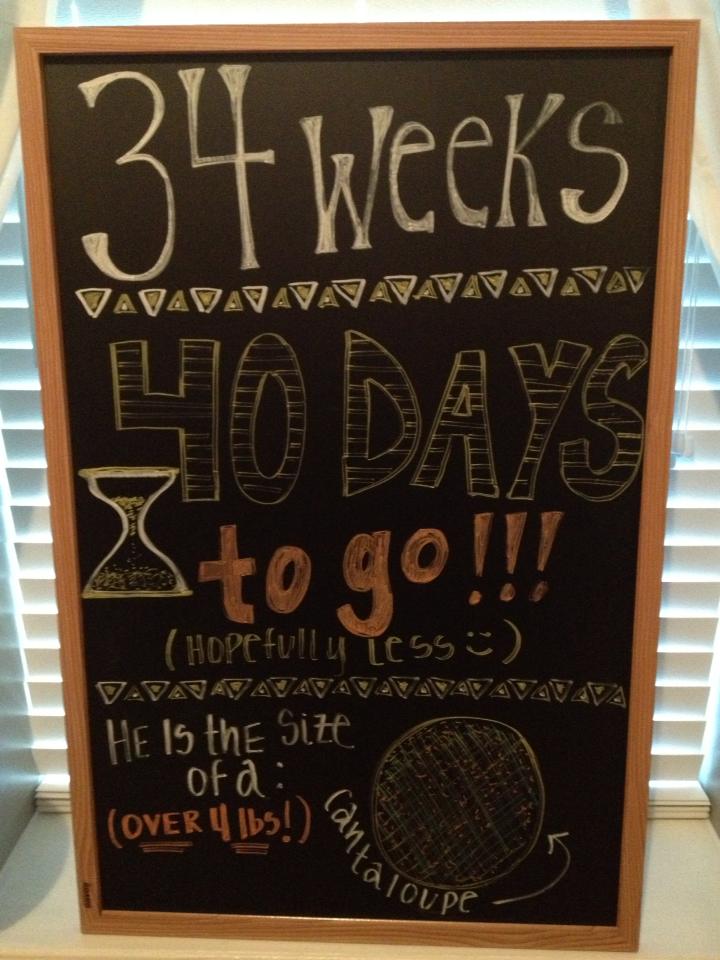 34 weeks
40 DAYS
to go!!!
(Hopefully Less :-)
He Is the Size
of a:
(OVER 4 lbs!)
Cantaloupe